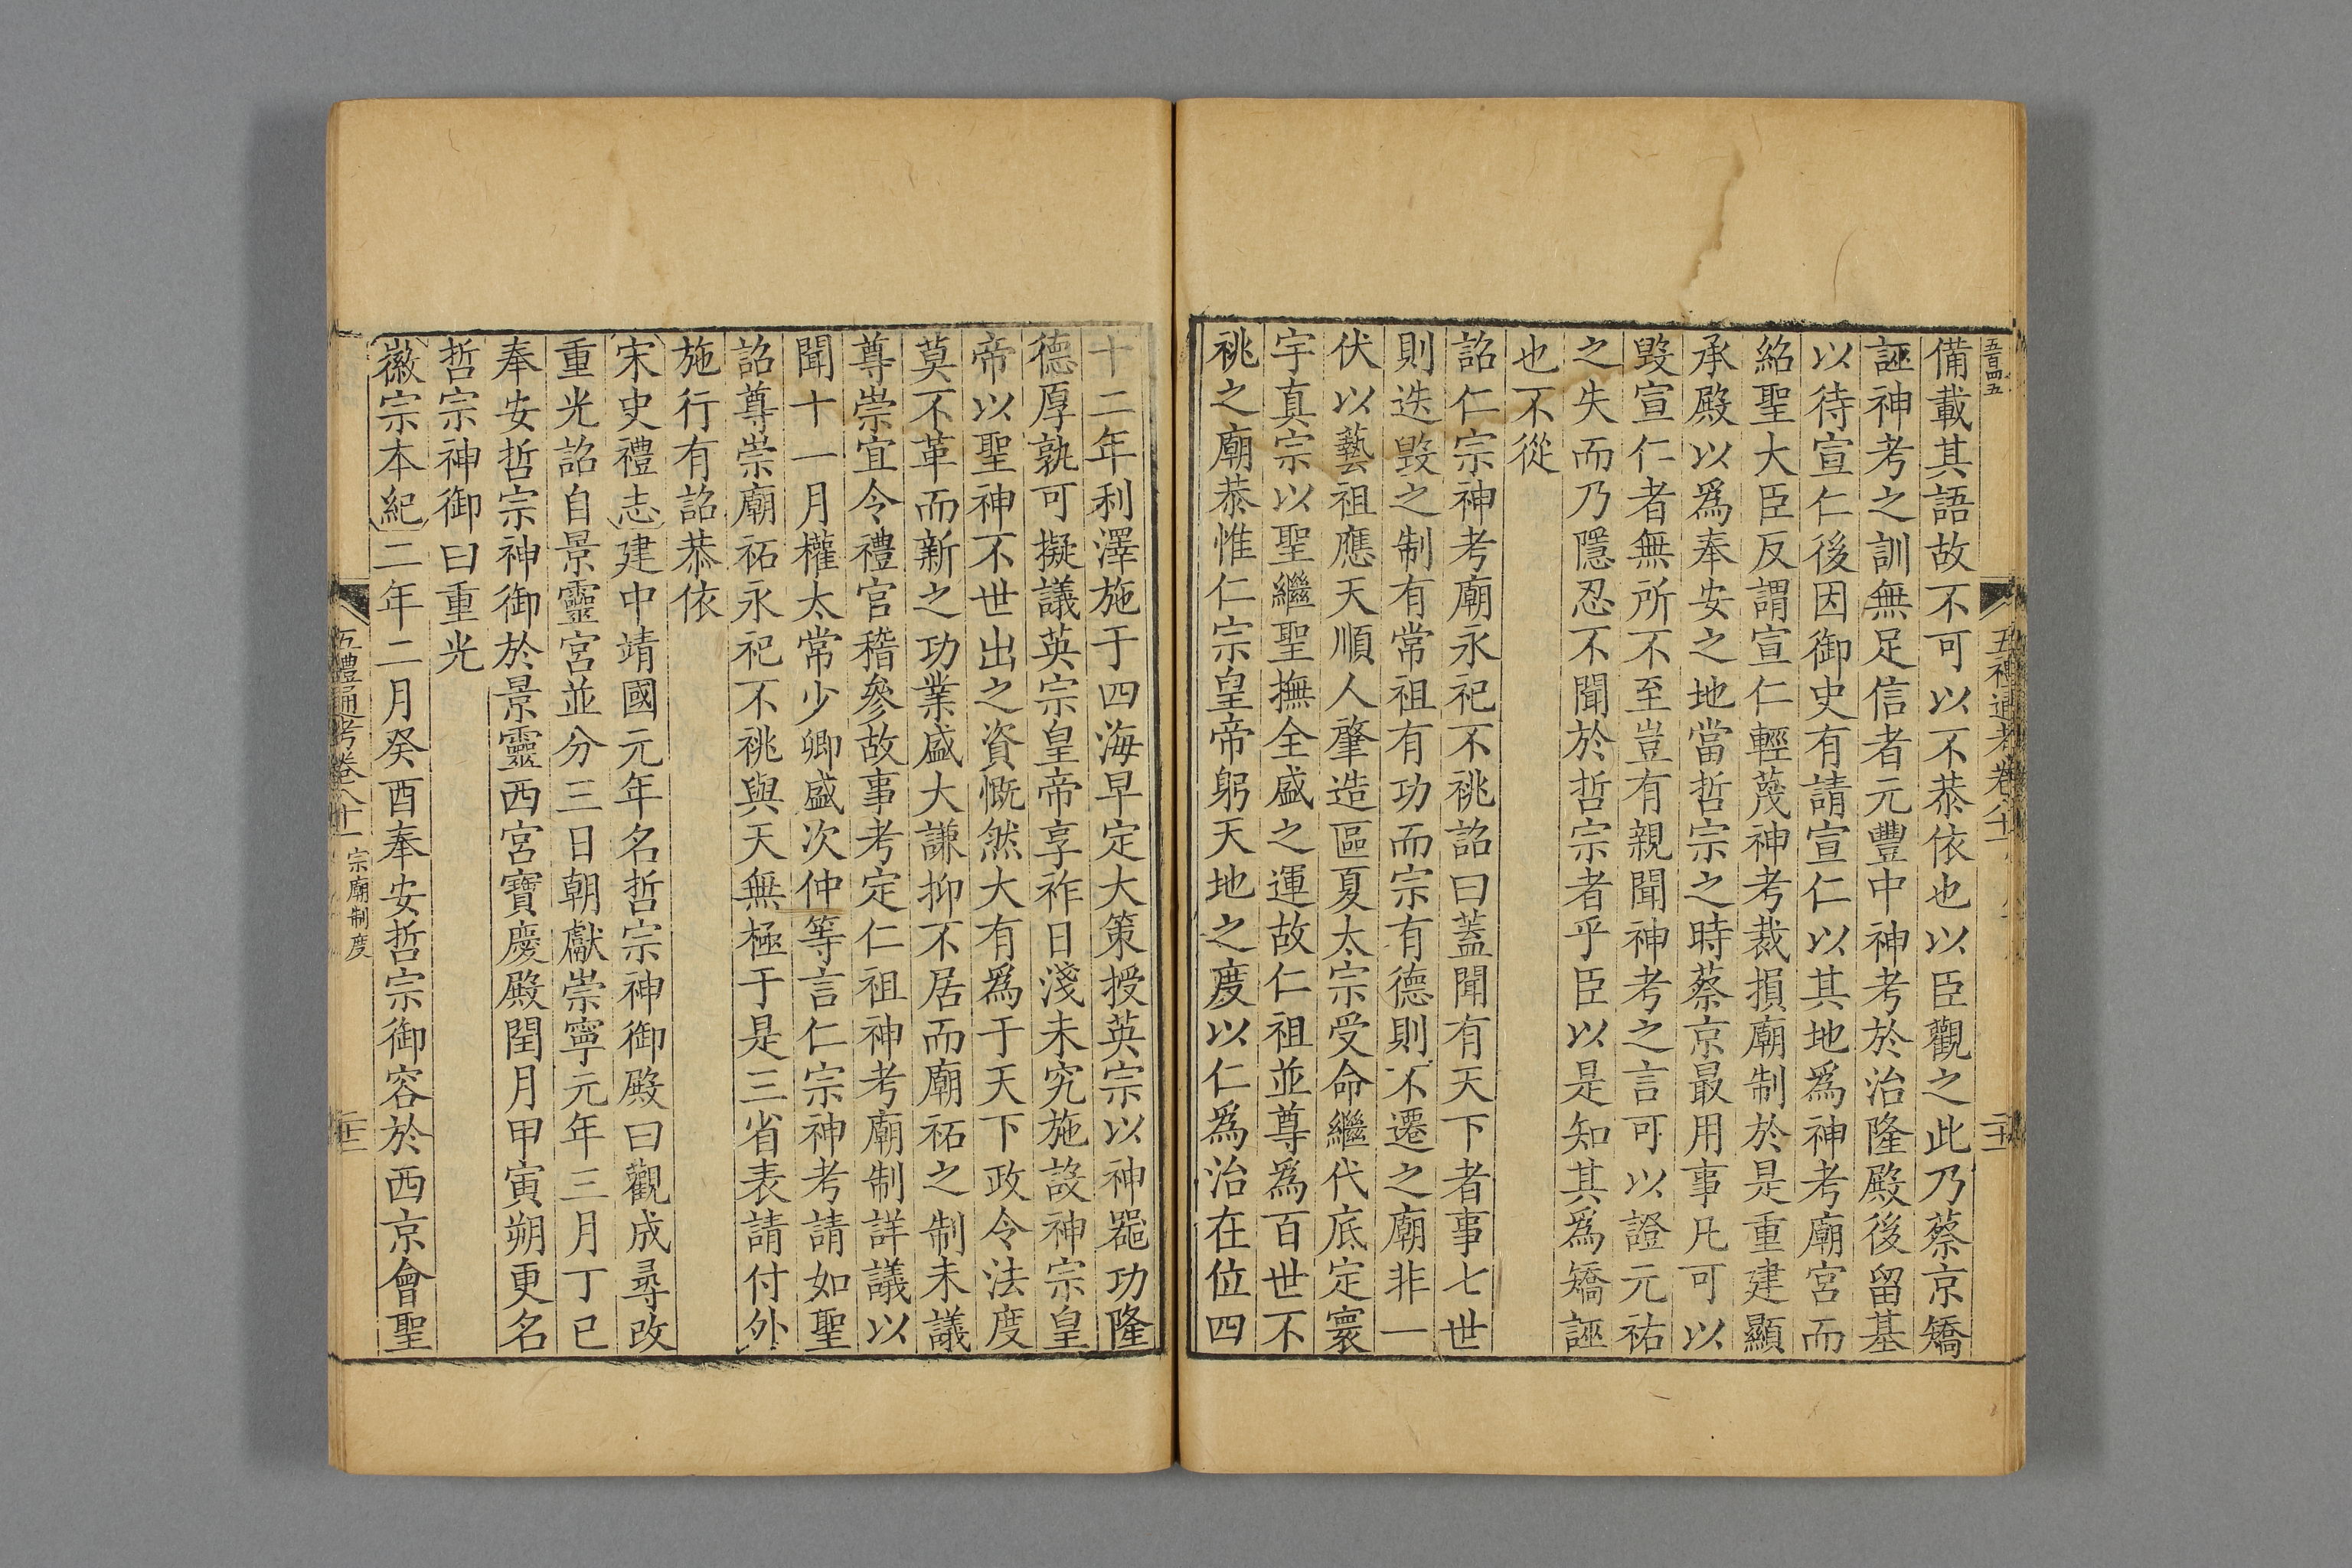 五百四五
備載其語故不可以不恭依也以臣觀之此乃蔡京矯
誣神考之訓無足信者元豐中神考於治隆殿後留基
以待宣仁後因御史有請宣仁以其地爲神考廟宮而
紹聖大臣反謂宣仁輕蔑神考裁損廟制於是重建顯
承殿以爲奉安之地當哲宗之時蔡京最用事凡可以
毀宣仁者無所不至豈有親聞神考之言可以證元祐
之失而乃隱忍不聞於哲宗者乎臣以是知其爲矯誣
也不從
詔仁宗神考廟永祀不祧詔曰蓋聞有天下者事七世
則迭毀之制有常祖有功而宗有德則不遷之廟非一
伏以藝祖應天順人肇造區夏太宗受命繼代底定寰
宇真宗以聖繼聖撫全盛之運故仁祖並尊爲百世不
祧之廟恭惟仁宗皇帝躬天地之度以仁爲治在位四
十二年利澤施于四海早定大策授英宗以神器功隆
德厚孰可擬議英宗皇帝享祚日淺未究施設神宗皇
帝以聖神不世出之資慨然大有爲于天下政令法度
莫不革而新之功業盛大謙抑不居而廟祏之制未議
尊崇宜令禮官稽參故事考定仁祖神考廟制詳議以
聞十一月權太常少卿盛次仲等言仁宗神考請如聖
詔尊崇廟祏永祀不祧與天無極于是三省表請付外
施行有詔恭依
宋史禮志建中靖國元年名哲宗神御殿曰觀成尋改
重光詔自景靈宮並分三日朝獻崇寧元年三月丁巳
奉安哲宗神御於景靈西宮寶慶殿閏月甲寅朔更名
哲宗神御曰重光
徽宗本紀二年二月癸酉奉安哲宗御容於西京會聖
五禮通考卷八十一 宗廟制度